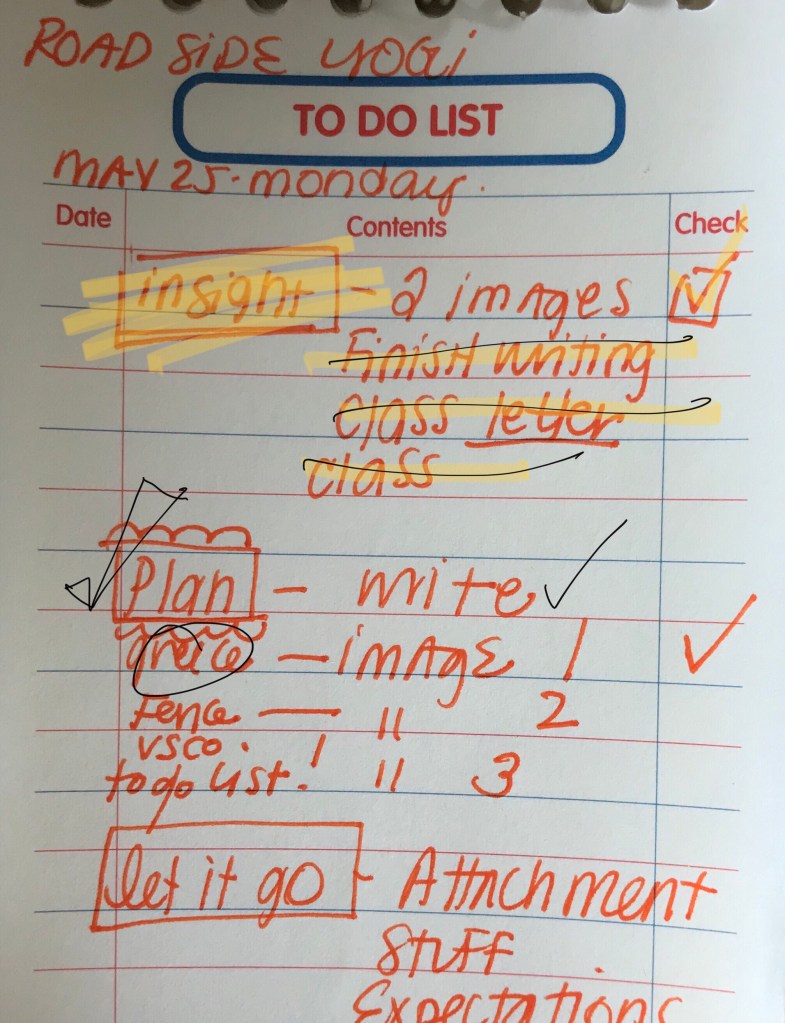 ROAD SIDE YOGi
TO DO LIST
MAY 25. monday.
Date Contents Check
insight - 2 imAges
Finish writing
class letter
class
Plan - write
grace - imAgE 1
Fence - " 2
vsco.
to do list! " 3
let it go - Attachment
Stuff
Expectations